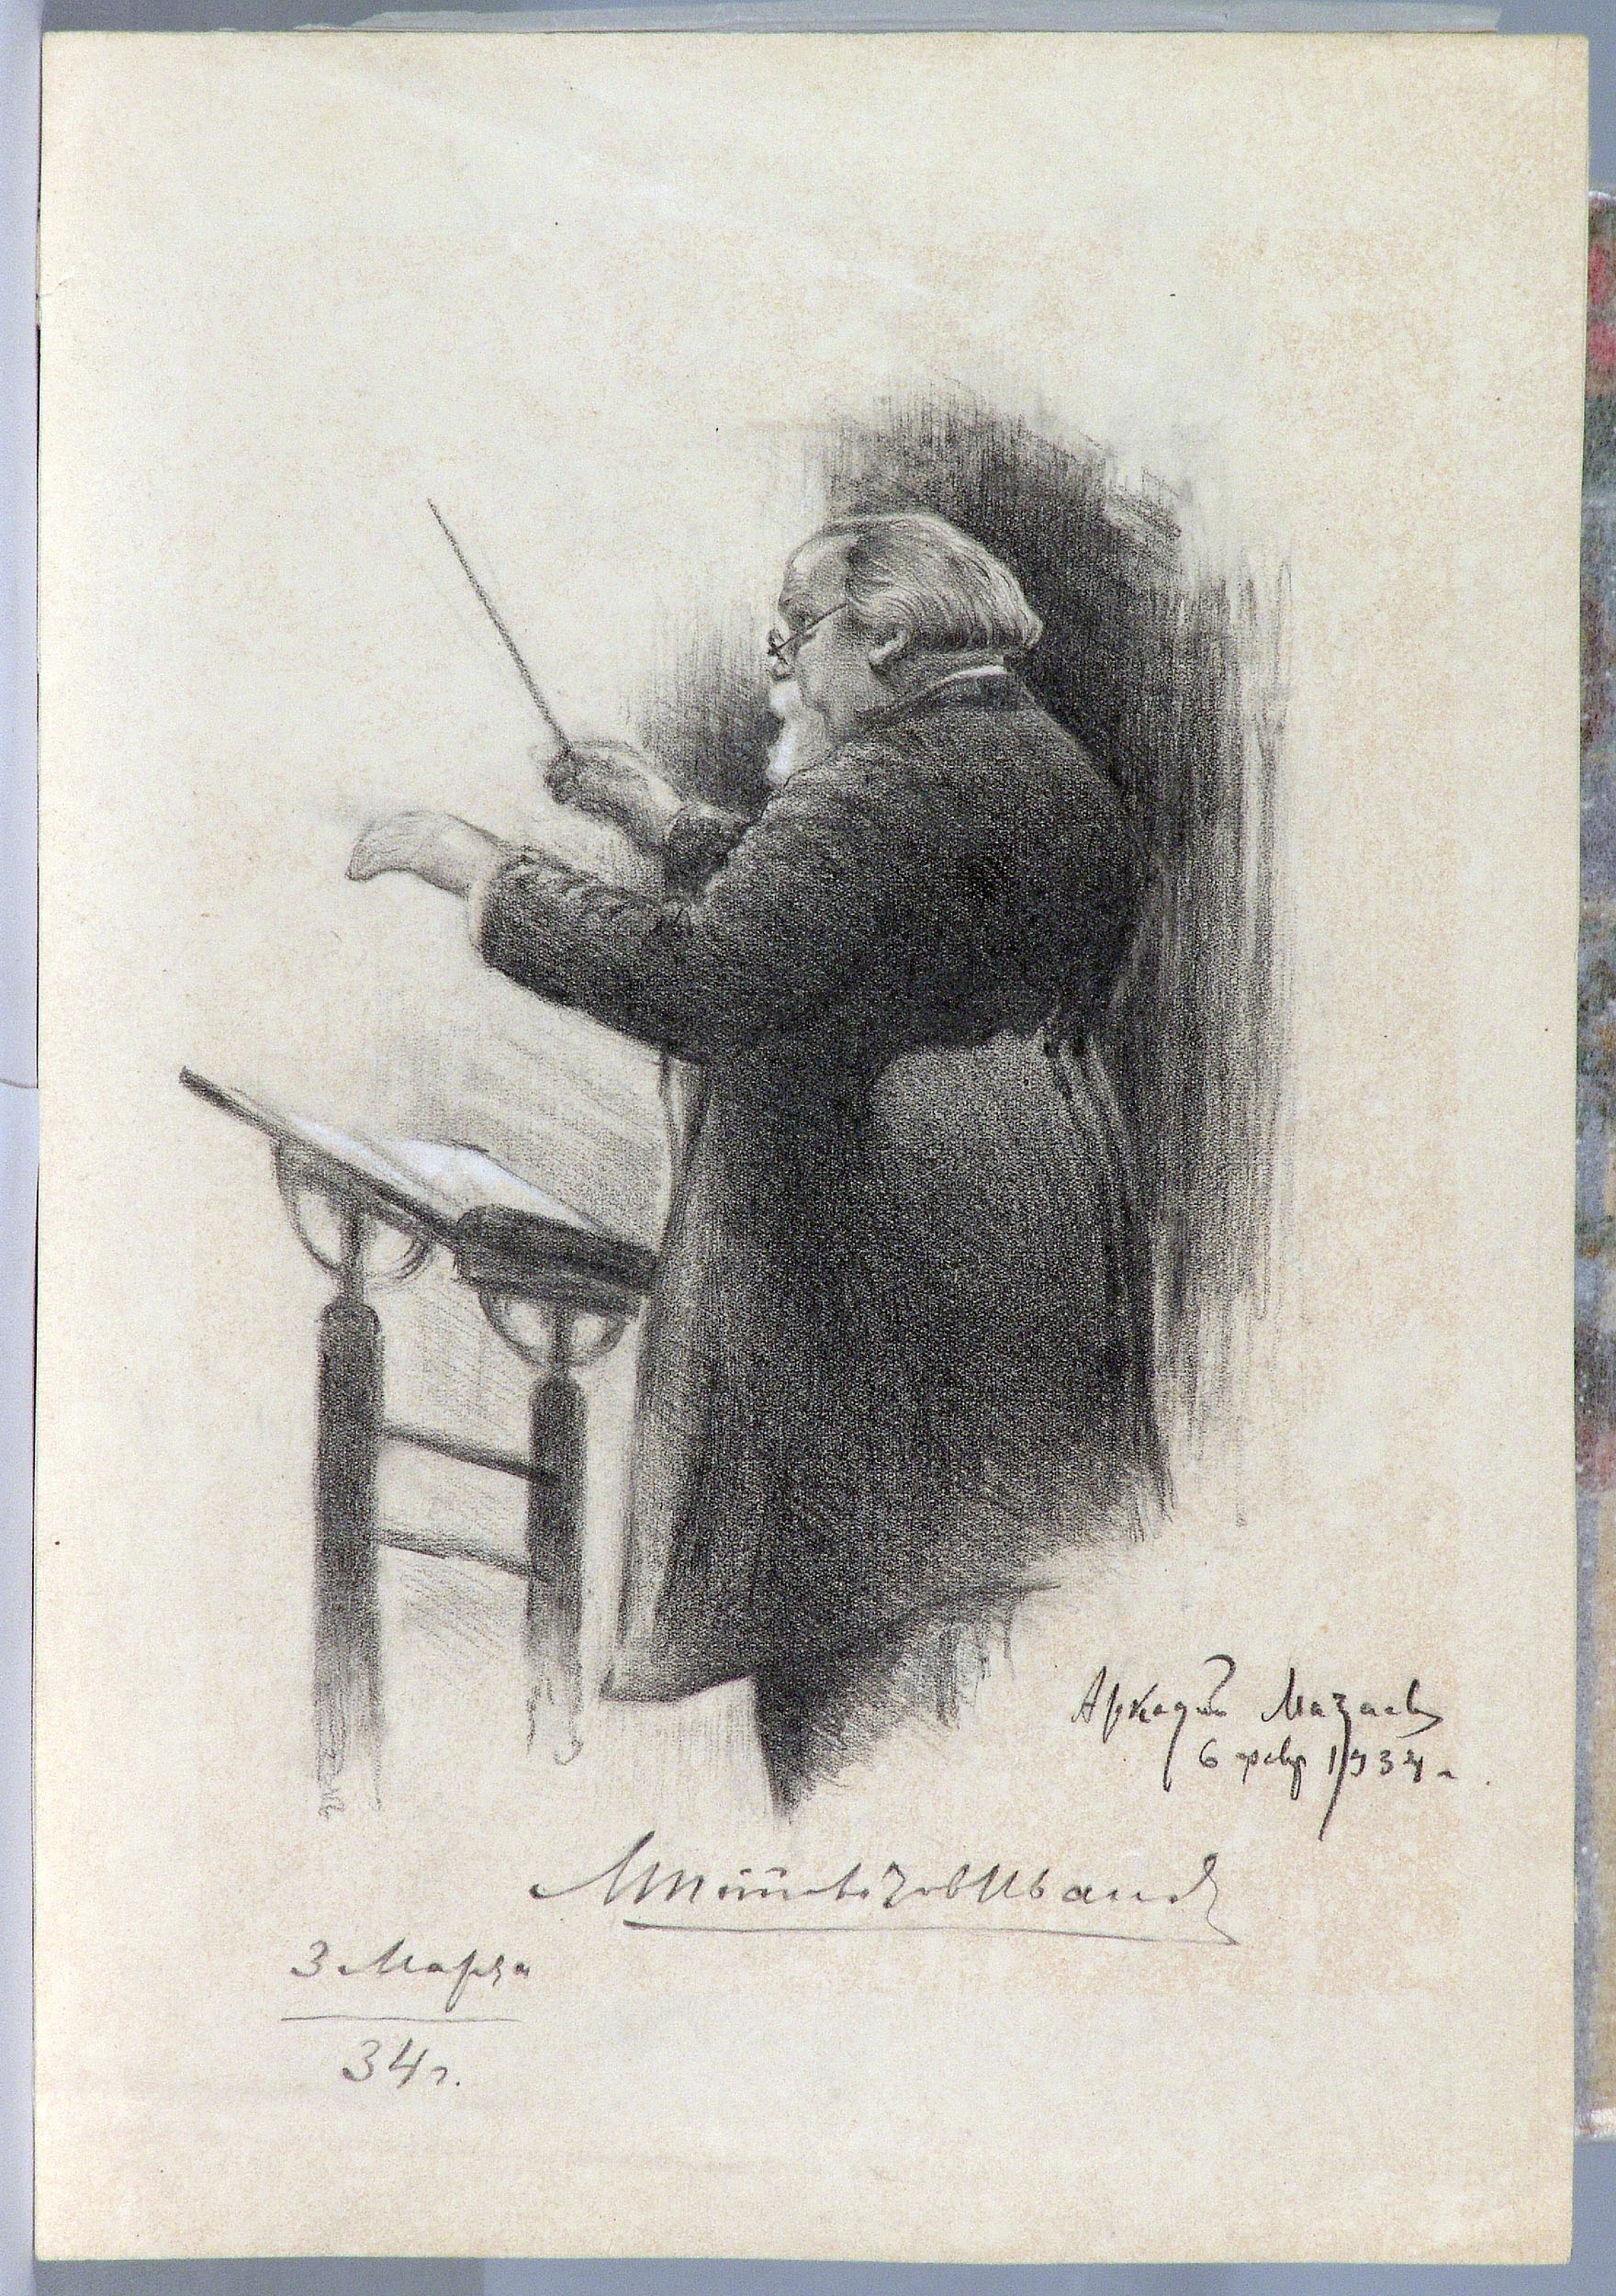 Аркадий Мазаев
6 февр 1934 г.
МИпполитовИванов
3 Марта
34 г.